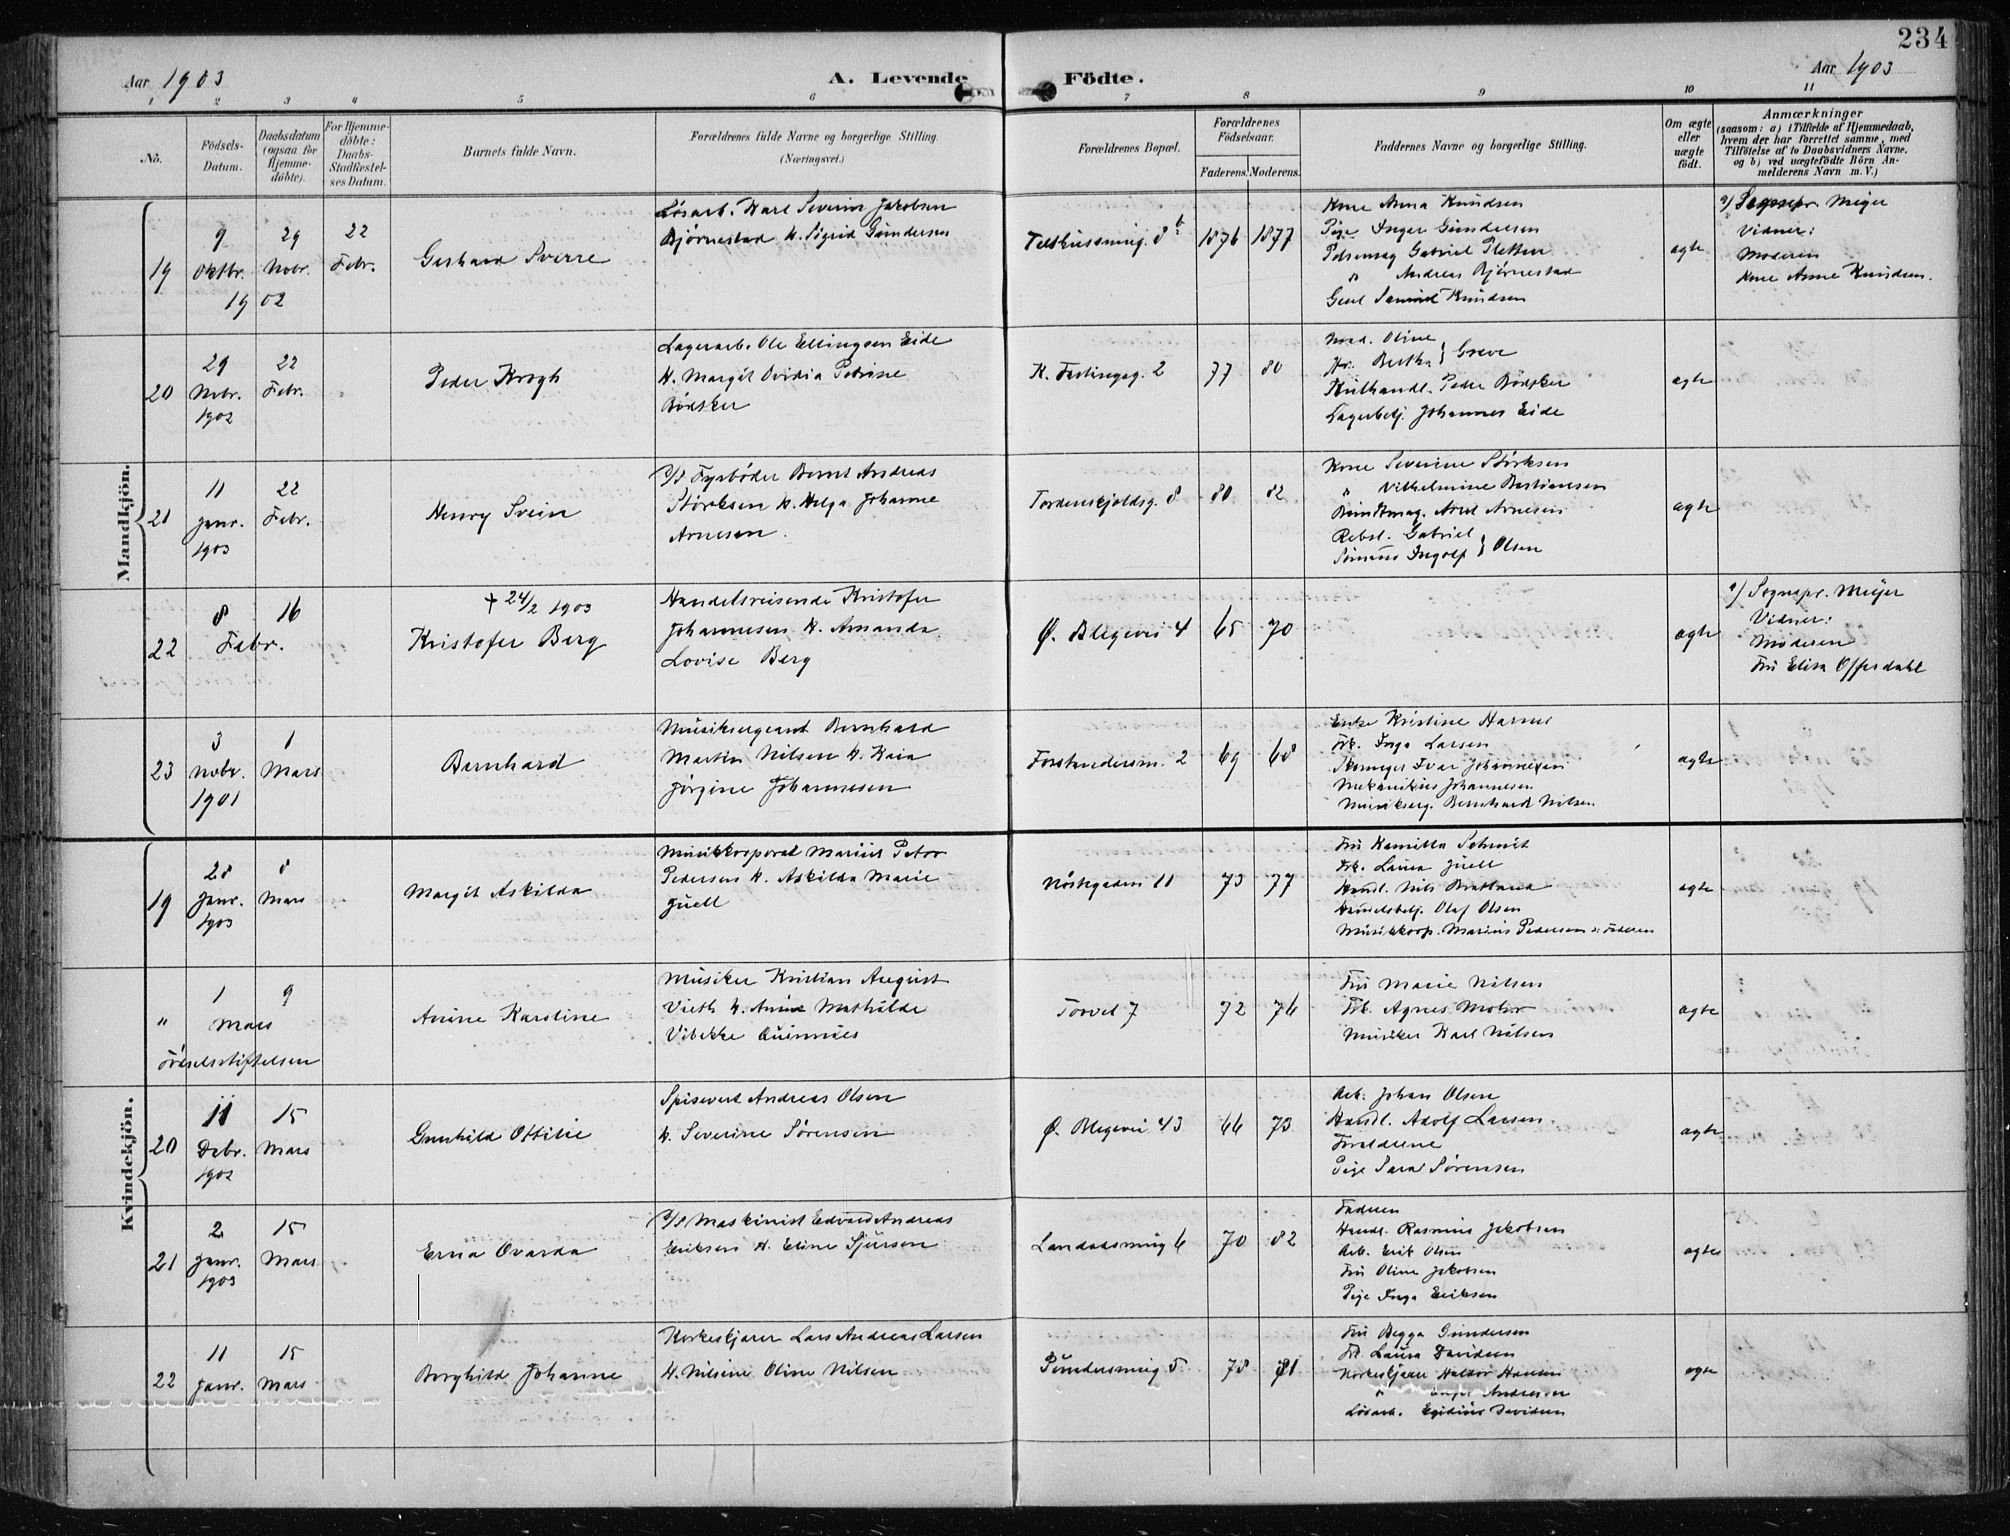 234
Aar 1903
A. Levende Födte.
Aar 1903
1 2 3 4 5 6 7 8 9 10 11
No.
Födsels-Datum.
Daabsdatum (ogsaa for Hjemme-döbte).
For Hjemme-döbte: Daabs-Stadfestel-ses Datum.
Barnets fulde Navn.
Forældrenes fulde Navne og borgerlige Stilling.
(Næringsvei.)
Forældrenes Bopæl.
Forældrenes Födselsaar.
Faderens. Moderens.
Faddernes Navne og borgerlige Stilling.
Om ægte eller uægte födt.
Anmærkninger
(saasom: a) i Tilfælde af Hjemmedaab,
hvem der har forrettet samme, med
Tilföielse af to Daabsvidners Navne.
og b) ved uægtefödte Börn An-
melderens Navn m. V.)
Mandkjön.
19
9 Oktbr. 1902
29 Novbr.
22 Febr.
Gerhard Sverre
Løsarb. Karl Severin Jakobsen
Bjørnestad H. Sigrid Gundersen
8b
1876 1877
Kone Anna Knudsen
Pige Inger Gundersen
Pølsemag Gabriel
" Andreas Bjørnestad
Knudsen
ægte
a/ Sognepr. Meyer
Vidner:
Moderen
Kone Anne Knudsen.
20
29 Novbr. 1902
22 Febr.
Peder Krogh
Lagerarb. Ole Ellingsen Eide
H. Margit Ovidia Petrine
Bødtker
K. Festingsg. 2
77 80
Mad. Oline
Fr. Bertha } Greve
Kulhandl. Peder Bødtker
Lagerbetj. Johannes Eide
ægte
21
11 Janr. 1903
22 Febr.
Henry Svein
D/S Fyrbøder Bernt Andreas
Størksen H. Helga Johanne
Arnesen.
Tordenskjoldsg. 8
80 82
Kone Severine Størksen
" Vilhelmine Bastiansen
Buntmag. Arnt Arnesen
Rebsl. Gabriel
Ingolf } Olsen
ægte
22
8 16
Febr.
† 24/2 1903
Kristofer Berg
Handelsreisende Kristofer
Johannesen H. Amanda
Lovise Berg
Ø. Blegevei 4
65 70
ægte
a/ Sognepr. Meyer
Vidner:
Moderen
Fru Elisa Offerdahl
23
3 Novbr. 1901
1 Mars
Bernhard
Musiksergeant Bernhard
Martin Nilsen H. Kaia
Jørgine Johannesen
Forstandersm. 2
69 68
Enke Kristine
Frk. Inga Larsen
Skomager Ivar Johannesen
Mekanikus Johannesen
Musikserg. Bernhard Nilsen
ægte
Kvindekjön.
19
28 Janr. 1903
8 Mars
Margit Askilda
Musikkorporal Marius Peter
Pedersen H. Askilda Marie
Juell
Nøstegaden 11
73 77
Fru Kamilla Schmit
Frk. Laura Juell
Handl. Nils Bratland
Handelsbetj. Olaf Olsen
Musikkorp. Marius Pedersen : Faderen
ægte
"
1 9
Mars
Födselsstiftelsen
Anine Karoline
Musiker Kristian August
Vieth H. Anine Mathilde
Vibekke
Torvet 7
72 76
Fru Marie Nilsen
Frk. Agnes Mohr
Musiker Karl Nilsen
ægte
20
11 Debr. 1902
15 Mars
Gunhild Ottilie
Spisevert Andreas Olsen
H. Severine Sørensen
Ø. Blegevei 43
66 73
Arb. Johan Olsen
Handl. Adolf Larsen.
Forældrene
Pige Sara Sørensen
ægte
21
2 Janr. 1903
15 Mars
Erna Ovarda
D/S Maskinist Edvard Andreas
Eriksen H. Eline Sjursen
Landaassmug 6
70 82
Faderen
Handl. Rasmus Jakobsen
Arb. Erik Olsen
Fru Oline Jakobsen
Pige Inga Eriksen
ægte
22
11 Janr.
15 Mars
Borghild Johanne
Korkeskjærer Lars Andreas Larsen
H. Nilsine Oline Nilsen
Pundersmug 5
78 81
Fru Begga Gundersen
Frk. Laura Davidsen
Korkeskjærer Haldor Hansen
" Andersen
Løsarb. Egidius Davidsen
ægte